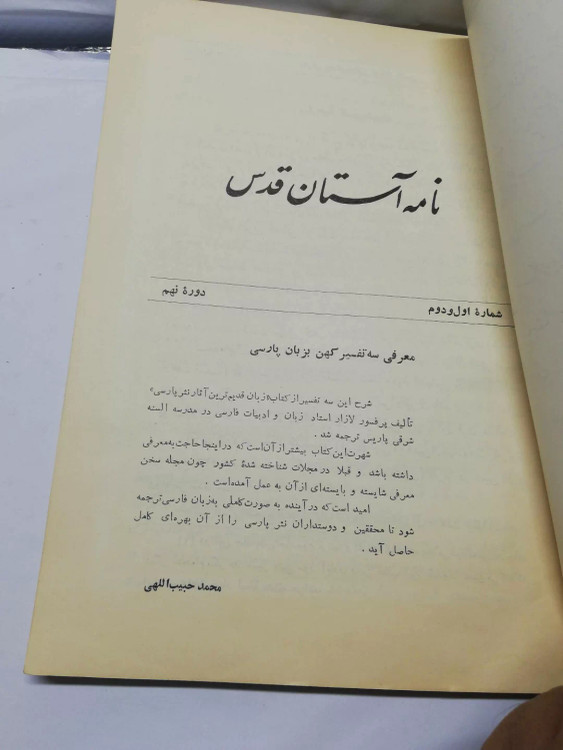 نامه آستان قدس
شمارهٔ اول و دوم
دورهٔ نهم
معرفی سه تفسیر کهن بزبان پارسی
شرح این سه تفسیر از کتاب «زبان قدیم‌ترین آثار نثر پارسی»
تألیف پرفسور لازار استاد زبان و ادبیات فارسی در مدرسه السنه
شرقی پاریس ترجمه شد .
شهرت این کتاب بیشتر از آن است که در اینجا حاجت به معرفی
داشته باشد و قبلا در مجلات شناخته شدهٔ کشور چون مجله سخن
معرفی شایسته و بایسته‌ای از آن به عمل آمده است .
امید است که در آینده به صورت کاملی به زبان فارسی ترجمه
شود تا محققین و دوستداران نثر پارسی را از آن بهره‌ای کامل
حاصل آید .
محمد حبیب‌اللهی